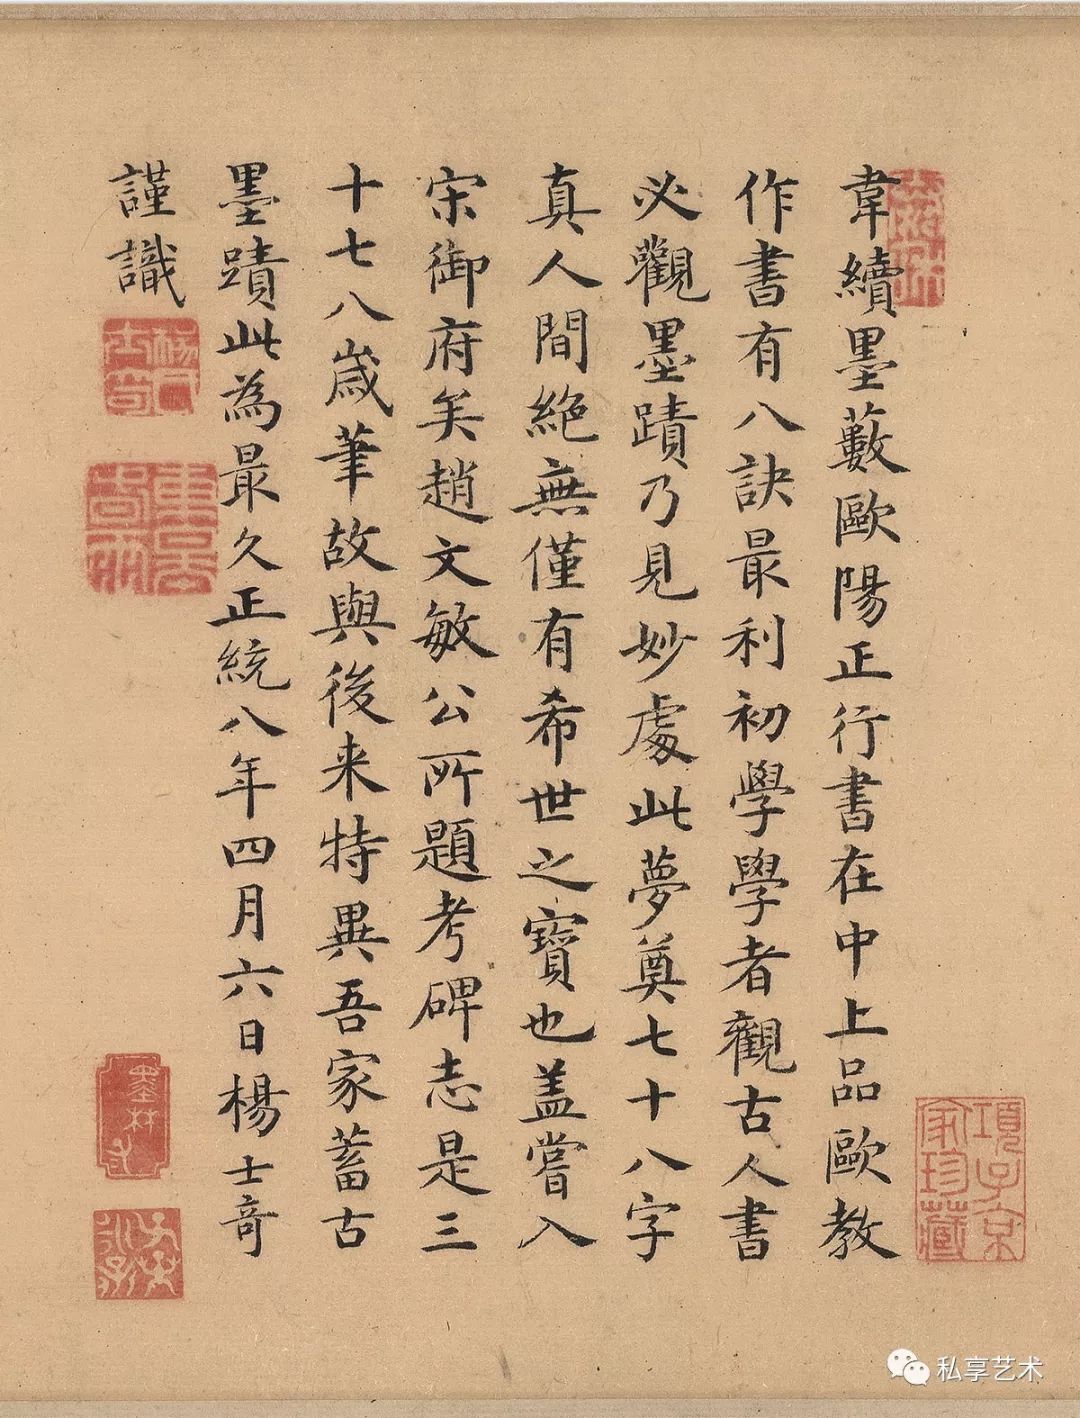 韋續墨藪歐陽正行書在中上品歐教
作書有八訣最利初學學者觀古人書
必觀墨蹟乃見妙處此夢奠七十八字
真人間絕無僅有希世之寶也盖嘗入
宋御府矣趙文敏公所題考碑志是三
十七八歲筆故與後来特異吾家蓄古
墨蹟此為最久正統八年四月六日楊士奇
謹識
楊士奇
項子京家珍藏
私享艺术